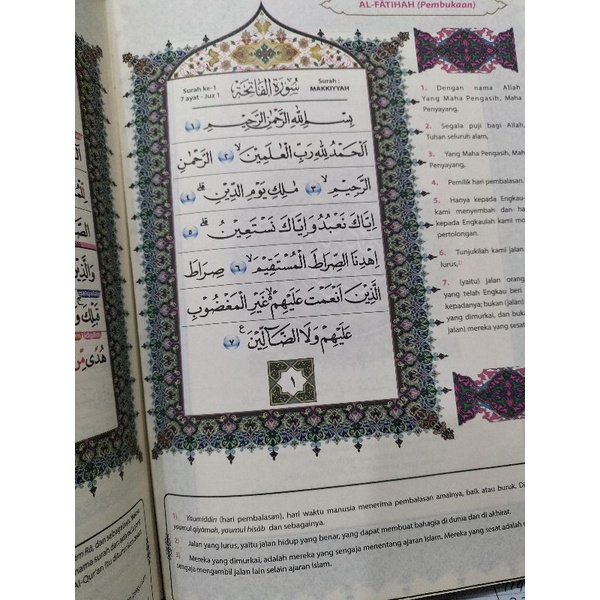 AL-FĀTIHAH (Pembukaan)
Surah ke-1
7 ayat - Juz 1
سُوْرَةُ الْفَاتِحَةِ
Surah :
MAKKIYYAH
بِسْمِ اللّٰهِ الرَّحْمٰنِ الرَّحِيْمِ ١
اَلْحَمْدُ لِلّٰهِ رَبِّ الْعٰلَمِيْنَۙ ٢ الرَّحْمٰنِ
الرَّحِيْمِۙ ٣ مٰلِكِ يَوْمِ الدِّيْنِۗ ٤
اِيَّاكَ نَعْبُدُ وَاِيَّاكَ نَسْتَعِيْنُۗ ٥
اِهْدِنَا الصِّرَاطَ الْمُسْتَقِيْمَۙ ٦ صِرَاطَ
الَّذِيْنَ اَنْعَمْتَ عَلَيْهِمْ ۙ غَيْرِ الْمَغْضُوْبِ
عَلَيْهِمْ وَلَا الضَّاۤلِّيْنَࣖ ٧
١
1. Dengan nama Allah
Yang Maha Pengasih, Maha
Penyayang.
2. Segala puji bagi Allah,
Tuhan seluruh alam,
3. Yang Maha Pengasih, Mah
Penyayang,
4. Pemilik hari pembalasan.
5. Hanya kepada Engkau
kami menyembah dan ha
kepada Engkaulah kami mo
pertolongan.
6. Tunjukilah kami jalan
lurus,
7. (yaitu) jalan orang
yang telah Engkau beri
kepadanya; bukan (jalan)
yang dimurkai, dan buka
jalan) mereka yang sesat
1) Yaumiddin (hari pembalasan), hari waktu manusia menerima pembalasan amalnya, baik atau buruk. Di
yaumul qiyāmah, yaumul hisāb dan sebagainya.
2) Jalan yang lurus, yaitu jalan hidup yang benar, yang dapat membuat bahagia di dunia dan di akhirat.
3) Mereka yang dimurkai, adalah mereka yang sengaja menentang ajaran Islam. Mereka yang sesat adalah
sengaja mengambil jalan lain selain ajaran Islam.